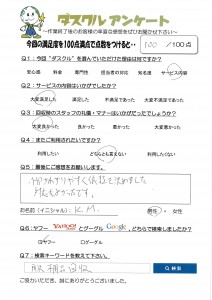 ダスクル アンケート
～作業終了後のお客様の率直な感想をぜひお聞かせ下さい～
今回の満足度を100点満点で点数をつけると・・ 100 /100点
Q1：今回『ダスクル』を選んでいただけた理由は何ですか？
安心感 料金 専門性 担当者の対応 知名度 サービス内容
Q2：サービスの内容はいかがでしたか？
大変良かった 満足 不満足であった 大変不満であった
Q3：回収時のスタッフの礼儀・マナーはいかがだったでしょうか？
大変良かった 良かった 普通 悪かった 大変悪かった
Q4：またご利用されたいですか？
利用したい どちらとも言えない 利用したくない
Q5：最後にご感想をお願いします。
お名前（イニシャル）： K.M. 男性・女性
Q6：ヤフー YAHOO! JAPAN とグーグル Google、どちらで検索しましたか？
□ヤフー □グーグル
Q7：検索キーワードを教えて下さい。
検索
ご協力いただき、誠にありがとうございました。